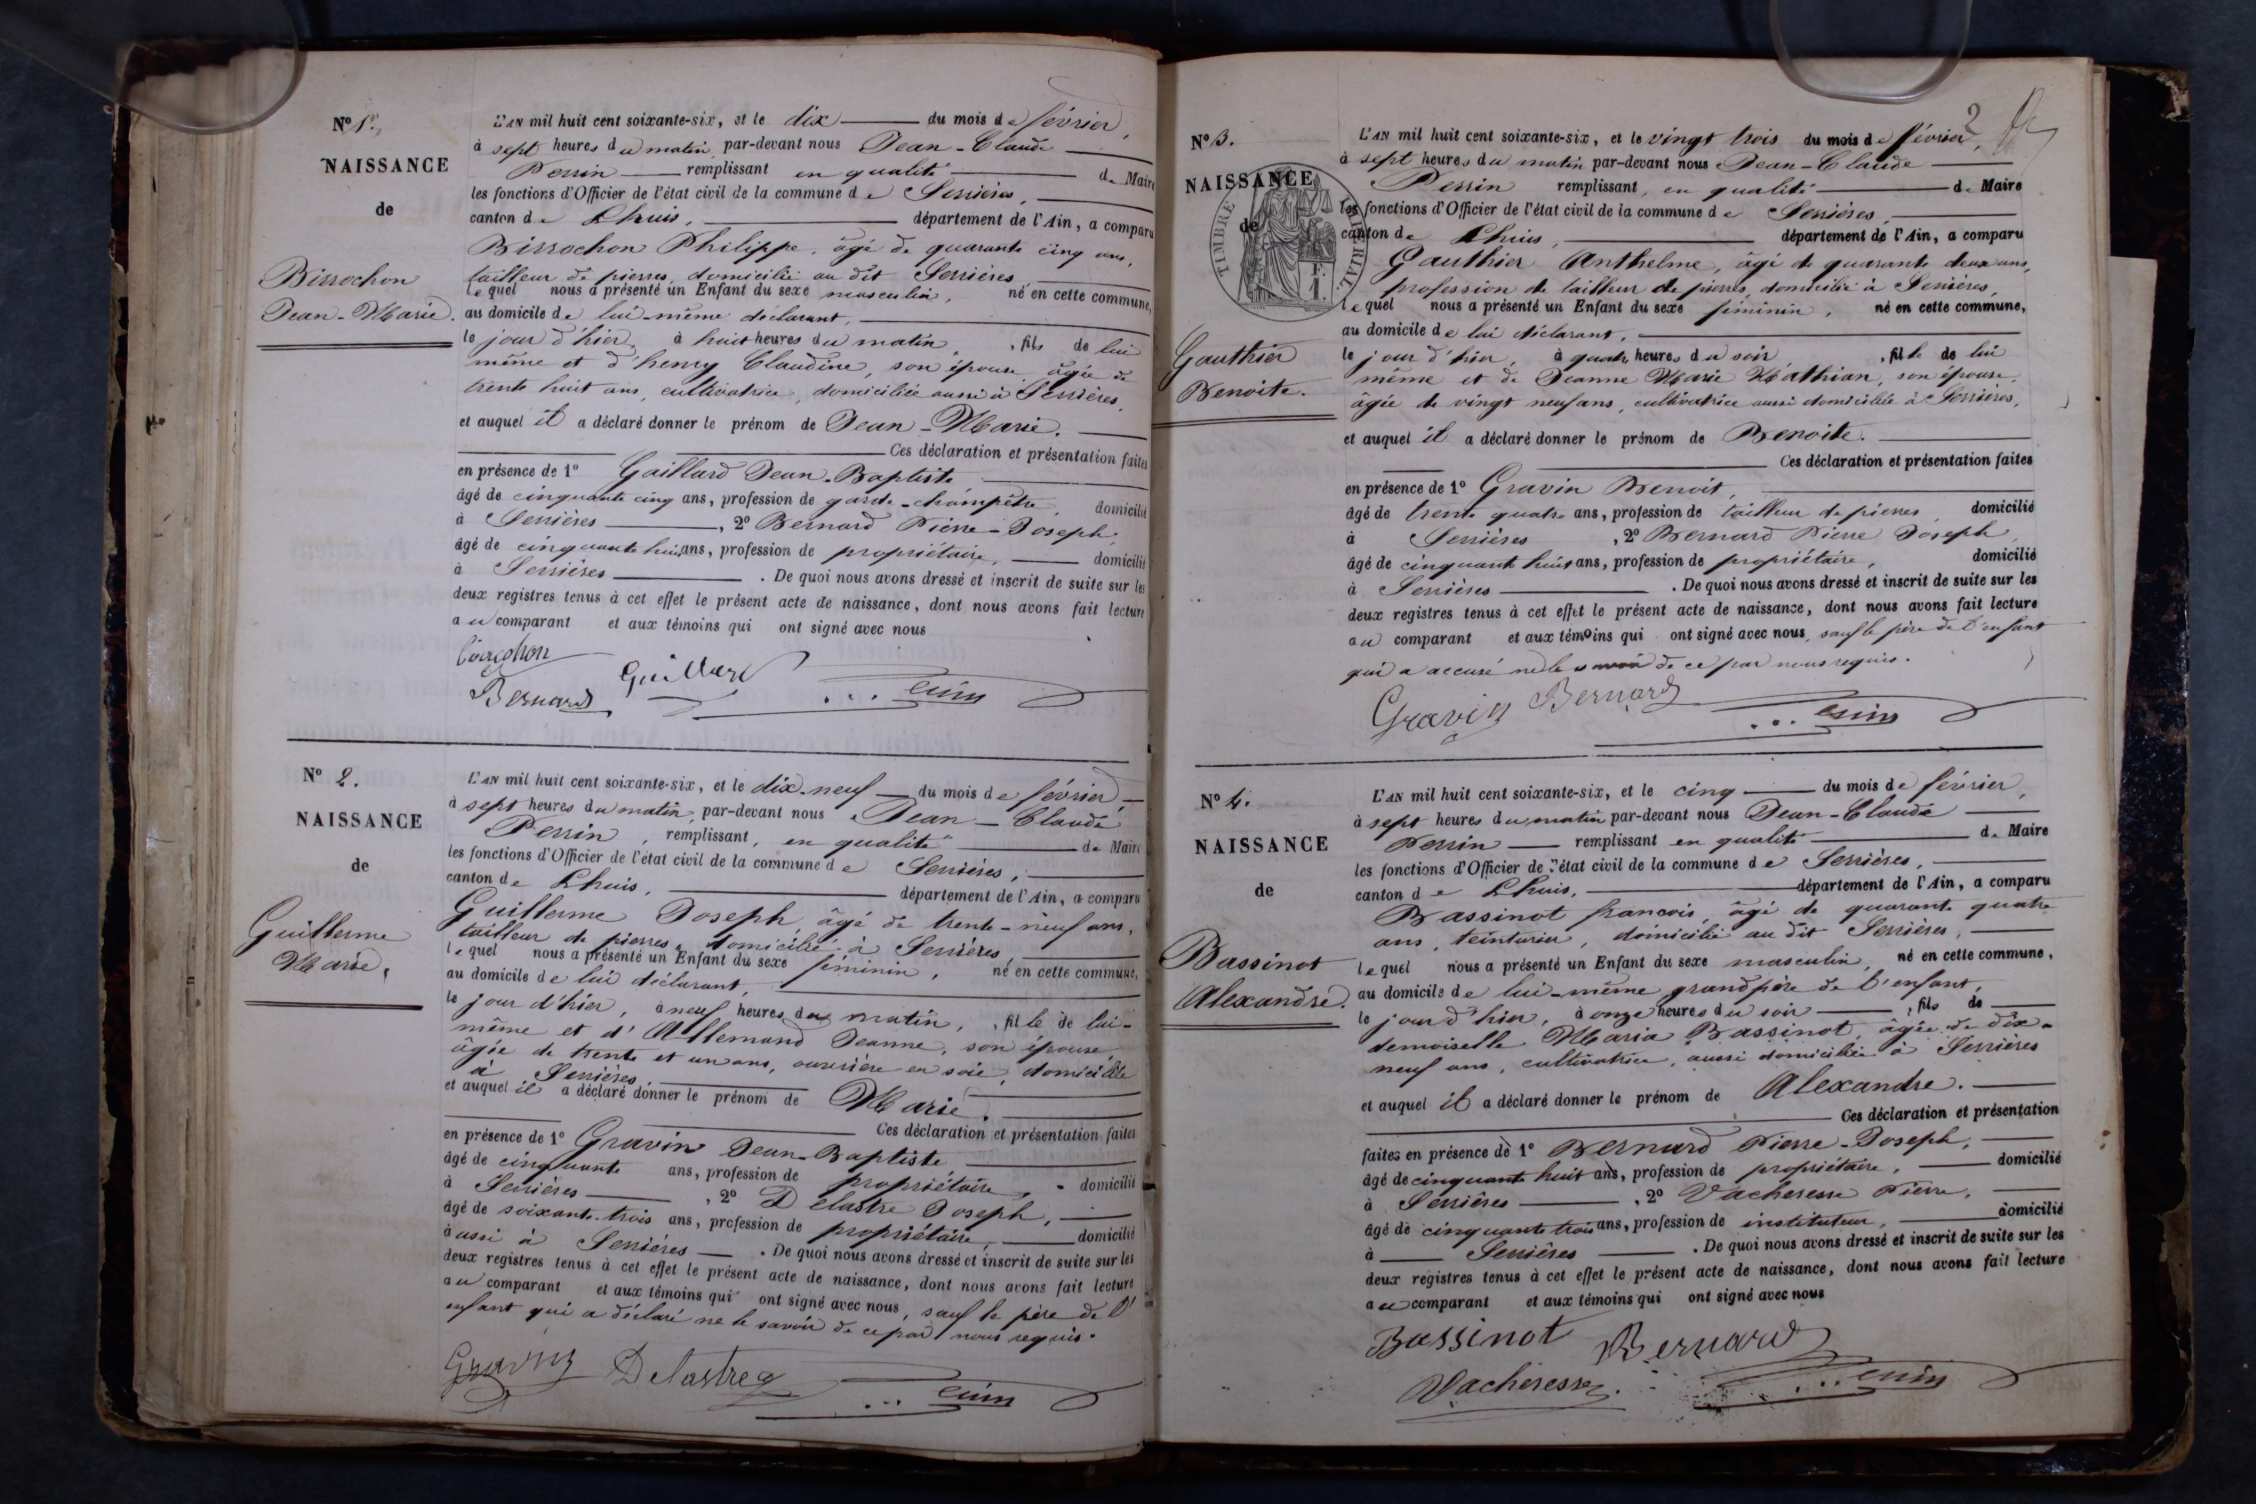 Nº 1er.
NAISSANCE
de
Birrochon
Jean-Marie.
L'AN mil huit cent soixante-six, et le dix du mois de février,
à sept heures du matin, par-devant nous Jean-Claude
Perrin remplissant en qualité de Maire
les fonctions d'Officier de l'état civil de la commune de Serrières,
canton de Lhuis, département de l'Ain, a comparu
Birrochon Philippe, âgé de quarante cinq ans,
tailleur de pierres, domicilié au dit Serrières
lequel nous a présenté un Enfant du sexe masculin, né en cette commune,
au domicile de lui-même déclarant,
le jour d'hier, à huit heures du matin, fils de lui
même et d'henry Claudine, son épouse âgée de
trente huit ans, cultivatrice, domiciliée aussi à Serrières,
et auquel il a déclaré donner le prénom de Jean-Marie.
Ces déclaration et présentation faites
en présence de 1º Gaillard Jean-Baptiste
âgé de cinquante cinq ans, profession de garde-champêtre, domicilié
à Serrières, 2º Bernard Pierre-Joseph
âgé de cinquante huit ans, profession de propriétaire, domicilié
à Serrières. De quoi nous avons dressé et inscrit de suite sur les
deux registres tenus à cet effet le présent acte de naissance, dont nous avons fait lecture
au comparant et aux témoins qui ont signé avec nous
Bernard
Nº 2.
NAISSANCE
de
Guillerme
Marie,
L'AN mil huit cent soixante-six, et le dix-neuf du mois de février,
à sept heures du matin, par-devant nous Jean-Claude
Perrin, remplissant, en qualité de Maire
les fonctions d'Officier de l'état civil de la commune de Serrières,
canton de Lhuis, département de l'Ain, a comparu
Guillerme Joseph âgé de trente-neuf ans,
tailleur de pierres, domicilié à Serrières,
lequel nous a présenté un Enfant du sexe féminin, né en cette commune,
au domicile de lui déclarant,
le jour d'hier, à neuf heures du matin, fille de lui-
même et d'Allemand Jeanne, son épouse,
âgée de trente et un ans, ouvrière en soie, domiciliée
à Serrières,
et auquel il a déclaré donner le prénom de Marie.
Ces déclaration et présentation faites
en présence de 1º Gravin Jean-Baptiste
âgé de cinquante ans, profession de propriétaire, domicilié
à Serrières, 2º Delastre Joseph,
âgé de soixante-trois ans, profession de propriétaire, domicilié
aussi à Serrières. De quoi nous avons dressé et inscrit de suite sur les
deux registres tenus à cet effet le présent acte de naissance, dont nous avons fait lecture
au comparant et aux témoins qui ont signé avec nous, sauf le père de l'
enfant qui a déclaré ne le savoir de ce par nous requis.
Gravin Delastre
Nº 3.
NAISSANCE
de
TIMBRE IMPÉRIAL
Gauthier
Benoite.
L'AN mil huit cent soixante-six, et le vingt trois du mois de février,
à sept heures du matin, par-devant nous Jean-Claude
Perrin remplissant, en qualité de Maire
les fonctions d'Officier de l'état civil de la commune de Serrières,
canton de Lhuis, département de l'Ain, a comparu
Gauthier Anthelme, âgé de quarante deux ans,
profession de tailleur de pierres, domicilié à Serrières,
lequel nous a présenté un Enfant du sexe féminin, né en cette commune,
au domicile de lui déclarant,
le jour d'hier, à quatre heures du soir, fille de lui
même et de Jeanne Marie Mathian, son épouse,
âgée de vingt neuf ans, cultivatrice aussi domiciliée à Serrières,
et auquel il a déclaré donner le prénom de Benoite.
Ces déclaration et présentation faites
en présence de 1º Gravin Benoit,
âgé de trente quatre ans, profession de tailleur de pierres, domicilié
à Serrières, 2º Bernard Pierre Joseph,
âgé de cinquante huit ans, profession de propriétaire, domicilié
à Serrières. De quoi nous avons dressé et inscrit de suite sur les
deux registres tenus à cet effet le présent acte de naissance, dont nous avons fait lecture
au comparant et aux témoins qui ont signé avec nous, sauf le père de l'enfant
qui a accusé ne le savoir de ce par nous requis.
Gravin Bernard
Nº 4.
NAISSANCE
de
Bassinot
Alexandre.
L'AN mil huit cent soixante-six, et le cinq du mois de février,
à sept heures du matin par-devant nous Jean-Claude
Perrin remplissant en qualité de Maire
les fonctions d'Officier de l'état civil de la commune de Serrières,
canton de Lhuis, département de l'Ain, a comparu
Bassinot francois, âgé de quarante quatre
ans, teinturier, domicilié au dit Serrières,
lequel nous a présenté un Enfant du sexe masculin, né en cette commune,
au domicile de lui-même grandpère de l'enfant,
le jour d'hier, à onze heures du soir, fils de
demoiselle Maria Bassinot, âgée de dix-
neuf ans, cultivatrice, aussi domiciliée à Serrières
et auquel il a déclaré donner le prénom de Alexandre.
Ces déclaration et présentation
faites en présence de 1º Bernard Pierre-Joseph,
âgé de cinquante huit ans, profession de propriétaire, domicilié
à Serrières, 2º Vacheresse Pierre,
âgé de cinquante trois ans, profession de instituteur, domicilié
à Serrières. De quoi nous avons dressé et inscrit de suite sur les
deux registres tenus à cet effet le présent acte de naissance, dont nous avons fait lecture
au comparant et aux témoins qui ont signé avec nous
Bassinot Bernard
Vacheresse